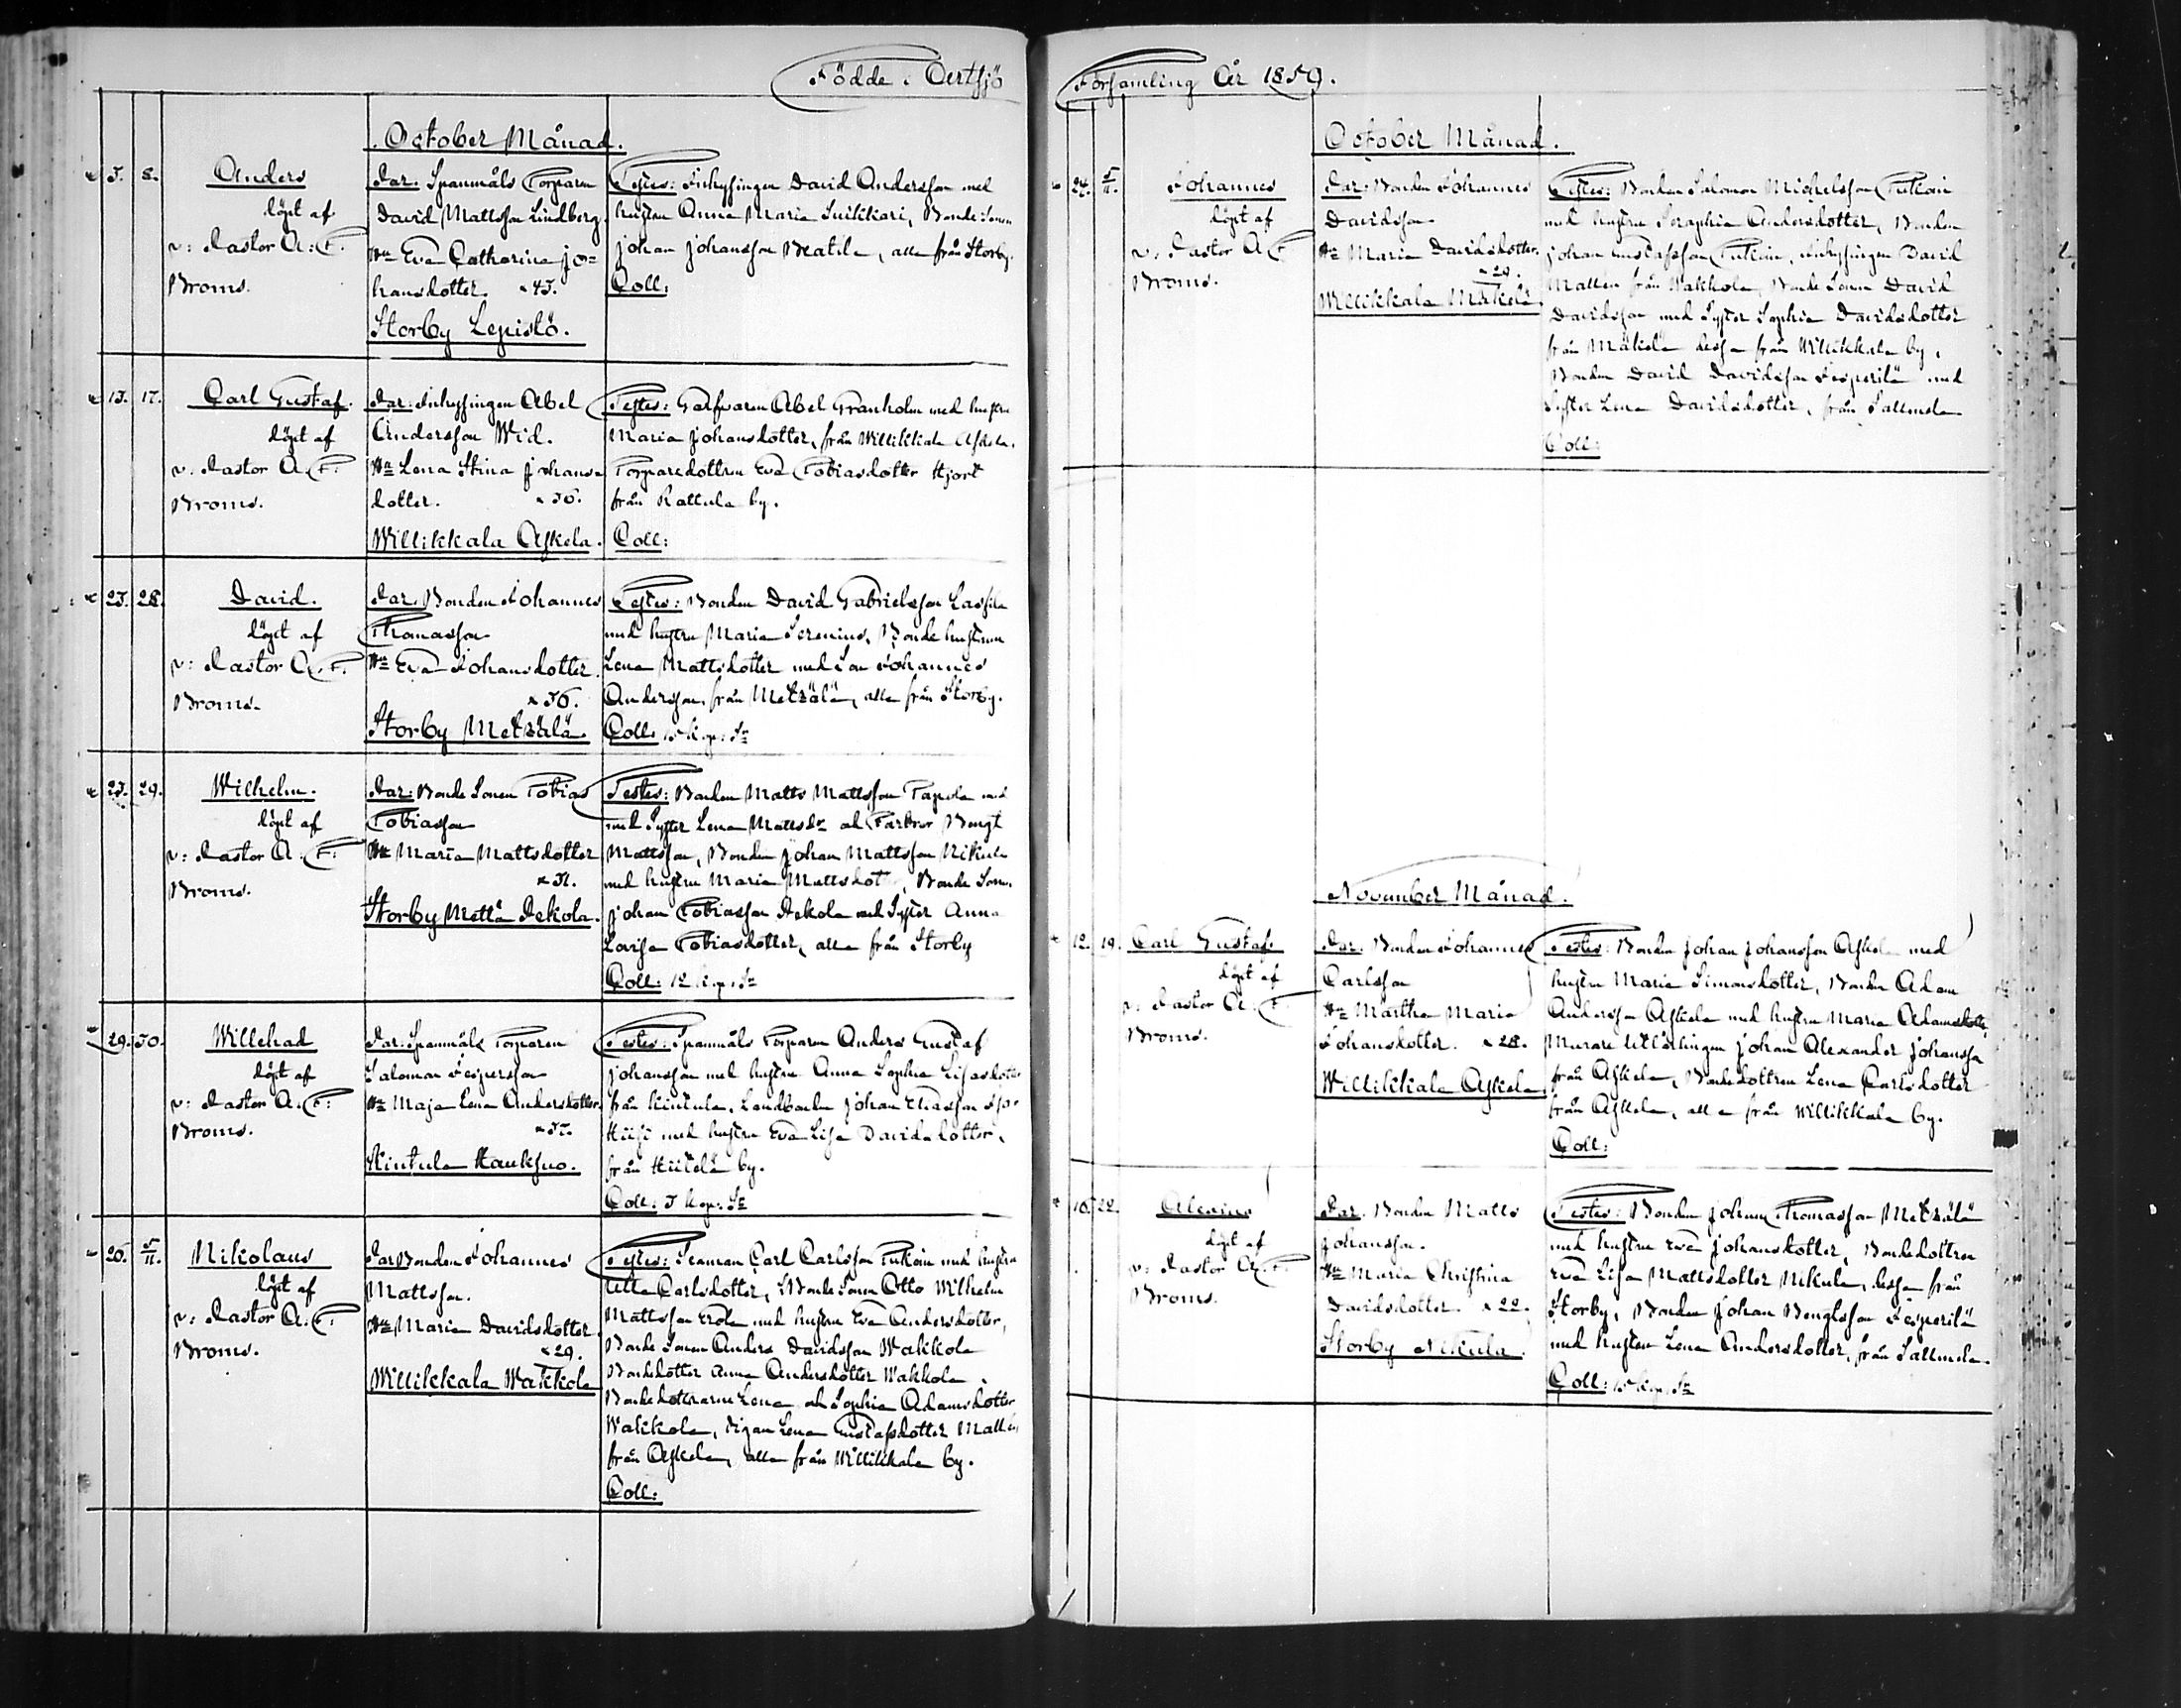 Födde i Oertsjö
October Månad.
3. 8. Anders
döpt af
v: Pastor A: F.
Broms.
Par: Spanmåls Torparen
David Mattsson Lindberg
Hu Eva Catharina jo=
hansdotter. 43.
Storby Lepistö.
Testes: Inhysingen David Andersson med
hustru Anna Maria Suikkari, Bonde Sonen
Johan Johansson Beatila, alla från Storby.
Coll:
13. 17. Carl Gustaf.
döpt af
v: Pastor A. F.
Broms.
Par: Inhysingen Abel
Andersson Wid.
Hu Lena Stina Johans
dotter. 36.
Willikkala Askela.
Testes: Garfvaren Abel Granholm med hustru
Maria Johansdotter, från Willikkala Askela.
Torparedottren Eva Tobiasdotter Hjort
från Rattula by.
Coll:
23. 28. David.
döpt af
v: Pastor A. F.
Broms.
Par. Bonden Johannes
Thomasson
Hu Eva Johansdotter.
36.
Storby Metzälä.
Testes: Bonden David Gabrielsson Lassila
med hustru Maria Serenius, Bonde hustrun
Lena Mattsdotter med Son Johannes
Andersson från Metzälä, alla från Storby.
Coll: 15 Kop: Sr
23. 29. Wilhelm.
döpt af
v: Pastor A. F.
Broms.
Par: Bonde Sonen Tobias
Tobiasson
Hu Maria Mattsdotter
31.
Storby Mettä Pekola.
Testes: Bonden Matts Mattsson Tapola med
med Syster Lena Mattsdr och Farbror Bengt
Mattsson, Bonden Johan Mattsson Nikula
med hustru Maria Mattsdot, Bonde Son.
Johan Tobiasson Pekola med Syster Anna
Lovisa Tobiasdotter, alla från Storby
Coll: 12 Kop: Sr
29. 30. Willehad
döpt af
v: Pastor A. F.
Broms.
Par: Spanmåls Torparen
Salomon Jespersson
Hu Maja Lena Andersdotter.
Kintula Hauksuo.
Testes: Spanmåls Torparen Anders Gustaf
Johansson med hustru Anna Sophia Lisasdotter
från Kintula. Landbonden Johan Eliasson
Hiisi med hustru Eva Lisa Davidsdotter,
från Hiitelä by.
Coll: 3 Kop: Sr
26. 5/11. Nikolaus
döpt af
v: Pastor A. F.
Broms.
Par Bonden Johannes
Mattsson.
Hu Maria Davidsdotter.
29.
Willikkala Wakkola
Testes: Seaman Carl Carlsson Tukoin med hustru
Ulla Carlsdotter, Bonde Sonen Otto Wilhelm
Mattsson Erola med hustru Eva Andersdotter,
Bonde Sonen Anders Davidsson Wakkola
Bondedotter Anna Andersdotter Wakkola.
Bondedöttrarne Lena och Sophia Adamsdotter
Wakkola, Pigan Lena Gustafsdotter Matten
från Askela, alla från Willikkala by.
Coll:
Församling År 1859.
October Månad.
24. 5/11. Johannes
döpt af
v: Pastor A. F.
Broms.
Par: Bonden Johannes
Davidsson
Hu Maria Davidsdotter.
29.
Willikkala Mäkelä
Testes: Bonden Salomon Michelsson Tukoin
med hustru Seraphia Andersdotter, Bonden
Johan Gustafsson Tukoin, Inhysingen David
Matten från Wakkola, Bonde Sonen David
Davidsson med Syster Sophia Davidsdotter
från Mäkelä dessa från Willikkala by.
Bonden David Davidsson Jesperilä med
Syster Lena Davidsdotter, från Sallmela
Coll:
November Månad.
12. 19. Carl Gustaf
döpt af
v: Pastor A. F.
Broms.
Par. Bonden Johannes
Carlsson
Hu Martha Maria
Johansdotter. 28.
Willikkala Askela.
Testes: Bonden Johan Johansson Askola med
hustru Maria Simonsdotter, Bonden Adam
Andersson Askela med hustru Maria Adamsdotter,
Murare Utlärlingen Johan Alexander Johansson
från Askela, Bondedottren Lena Carlsdotter
från Askela, alla från Willikkala by.
Coll:
16. 22. Alexius
döpt af
v: Pastor A. F.
Broms.
Par. Bonden Matts
Johansson.
Hu Maria Christina
Davidsdotter. 22.
Storby Nikula.
Testes: Bonden Johan Thomasson Metzälä
med hustru Eva Johansdotter, Bondedottren
Eva Lisa Mattsdotter Nikula, dessa från
Storby, Bonden Johan Bengtsson Jesperilä
med hustru Lena Andersdotter, från Sallmela.
Coll: 15 Kop: Sr